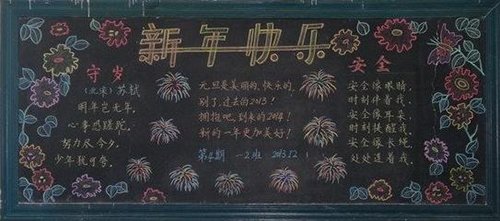 新年快乐
守岁
(北宋) 苏轼
明年岂无年,
心事恐蹉跎,
努力尽今夕,
少年犹可夸。
元旦是美丽的、快乐的,
别了,过去的2013!
拥抱吧,到来的2014!
新的一年更加美好!
第4期 一2班 2013.12
安全
安全像眼睛,
时刻伴着我,
安全像耳朵,
时刻提醒我,
安全像长绳,
处处连着我